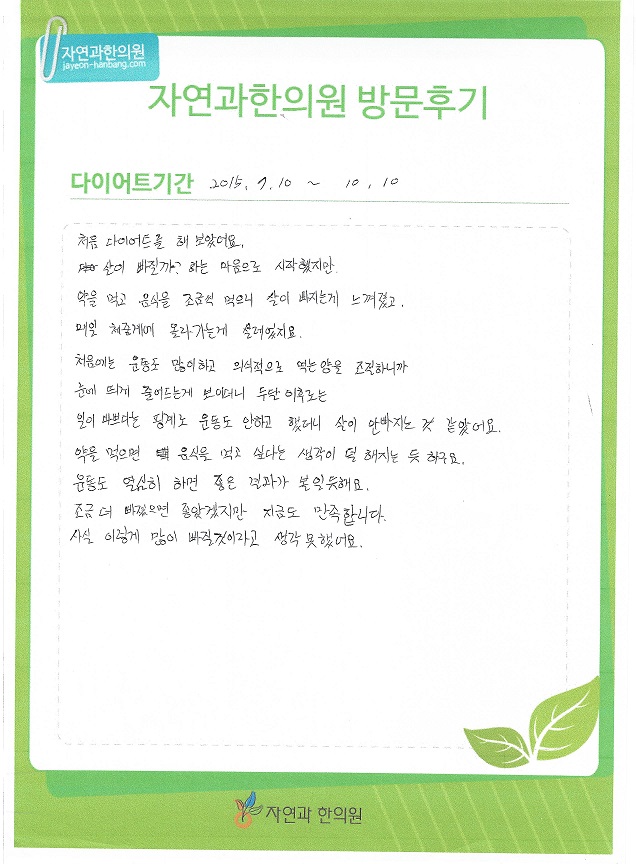 자연과한의원
jayeon-hanbang.com
자연과한의원 방문후기
다이어트기간 2015. 7. 10 ~ 10. 10
처음 다이어트를 해 보았어요.
살이 빠질까? 하는 마음으로 시작했지만
약을 먹고 음식을 조금씩 먹으니 살이 빠지는게 느껴졌고.
매일 체중계에 올라가는게 설레였지요.
처음에는 운동도 많이하고 의식적으로 먹는 양을 조절하니까
눈에 띄게 줄어드는게 보이더니 두달 이후로는
일이 바쁘다는 핑계로 운동도 안하고 했더니 살이 안빠지는 것 같았어요.
약을 먹으면 음식을 먹고 싶다는 생각이 덜 해지는 듯 하구요.
운동도 열심히 하면 좋은 결과가 보일듯해요.
조금 더 빠졌으면 좋았겠지만 지금도 만족합니다.
사실 이렇게 많이 빠질것이라고 생각 못했어요.
자연과 한의원